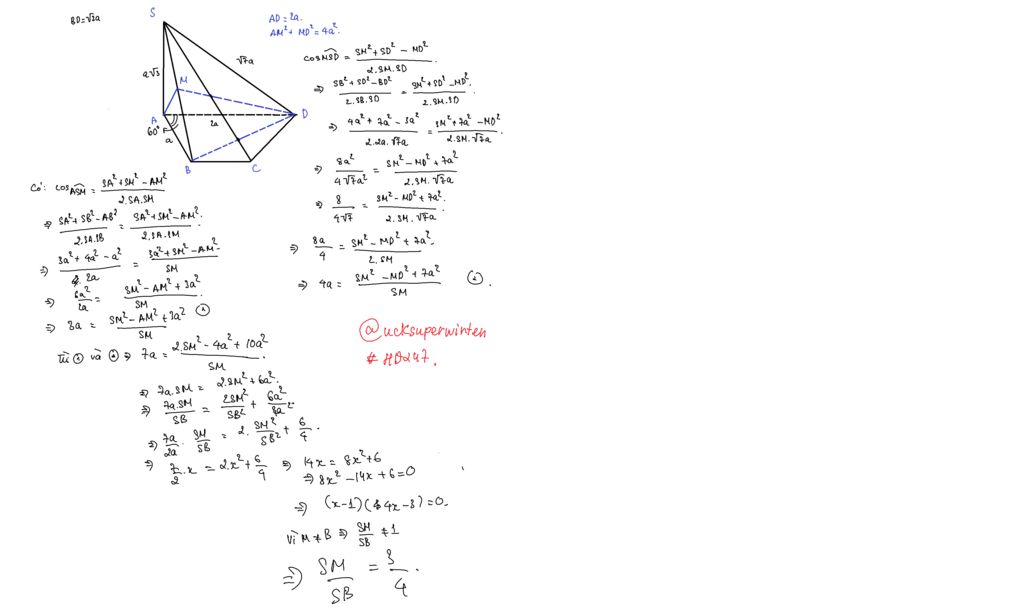 BD=√2a
S
AD=2a.
AM²+MD²=4a².
a√3
√7a
M
A
2a
D
60°
a
B
C
cosMSD = (SM²+SD²-MD²)/(2.SM.SD)
⇒ (SB²+SD²-BD²)/(2.SB.SD) = (SM²+SD²-MD²)/(2.SM.SD).
⇒ (4a²+7a²-3a²)/(2.2a.√7a) = (SM²+7a²-MD²)/(2.SM.√7a)
⇒ 8a²/(4√7a²) = (SM²-MD²+7a²)/(2.SM.√7a)
⇒ 8/(4√7) = (SM²-MD²+7a²)/(2.SM.√7a).
⇒ 8a/4 = (SM²-MD²+7a²)/(2.SM)
⇒ 4a = (SM²-MD²+7a²)/SM (2).
Có: cosASM = (SA²+SM²-AM²)/(2.SA.SM)
⇒ (SA²+SB²-AB²)/(2.SA.SB) = (SA²+SM²-AM²)/(2.SA.SM).
⇒ (3a²+4a²-a²)/(2a) = (3a²+SM²-AM²)/SM
⇒ 6a²/2a = (SM²-AM²+3a²)/SM
⇒ 3a = (SM²-AM²+3a²)/SM (1)
Từ (1) và (2) ⇒ 7a = (2.SM²-4a²+10a²)/SM.
⇒ 7a.SM = 2.SM²+6a².
⇒ 7a.SM/SB = 2SM²/SB² + 6a²/4a²
⇒ 7a/2a . SM/SB = 2. SM²/SB² + 6/4.
⇒ 7/2 .x = 2.x²+6/4 ⇒ 14x = 8x²+6
⇒ 8x²-14x+6=0
⇒ (x-1)(4x-3)=0.
Vì M≠B ⇒ SM/SB ≠ 1
⇒ SM/SB = 3/4.
@ucksuperwinten
#HD247.